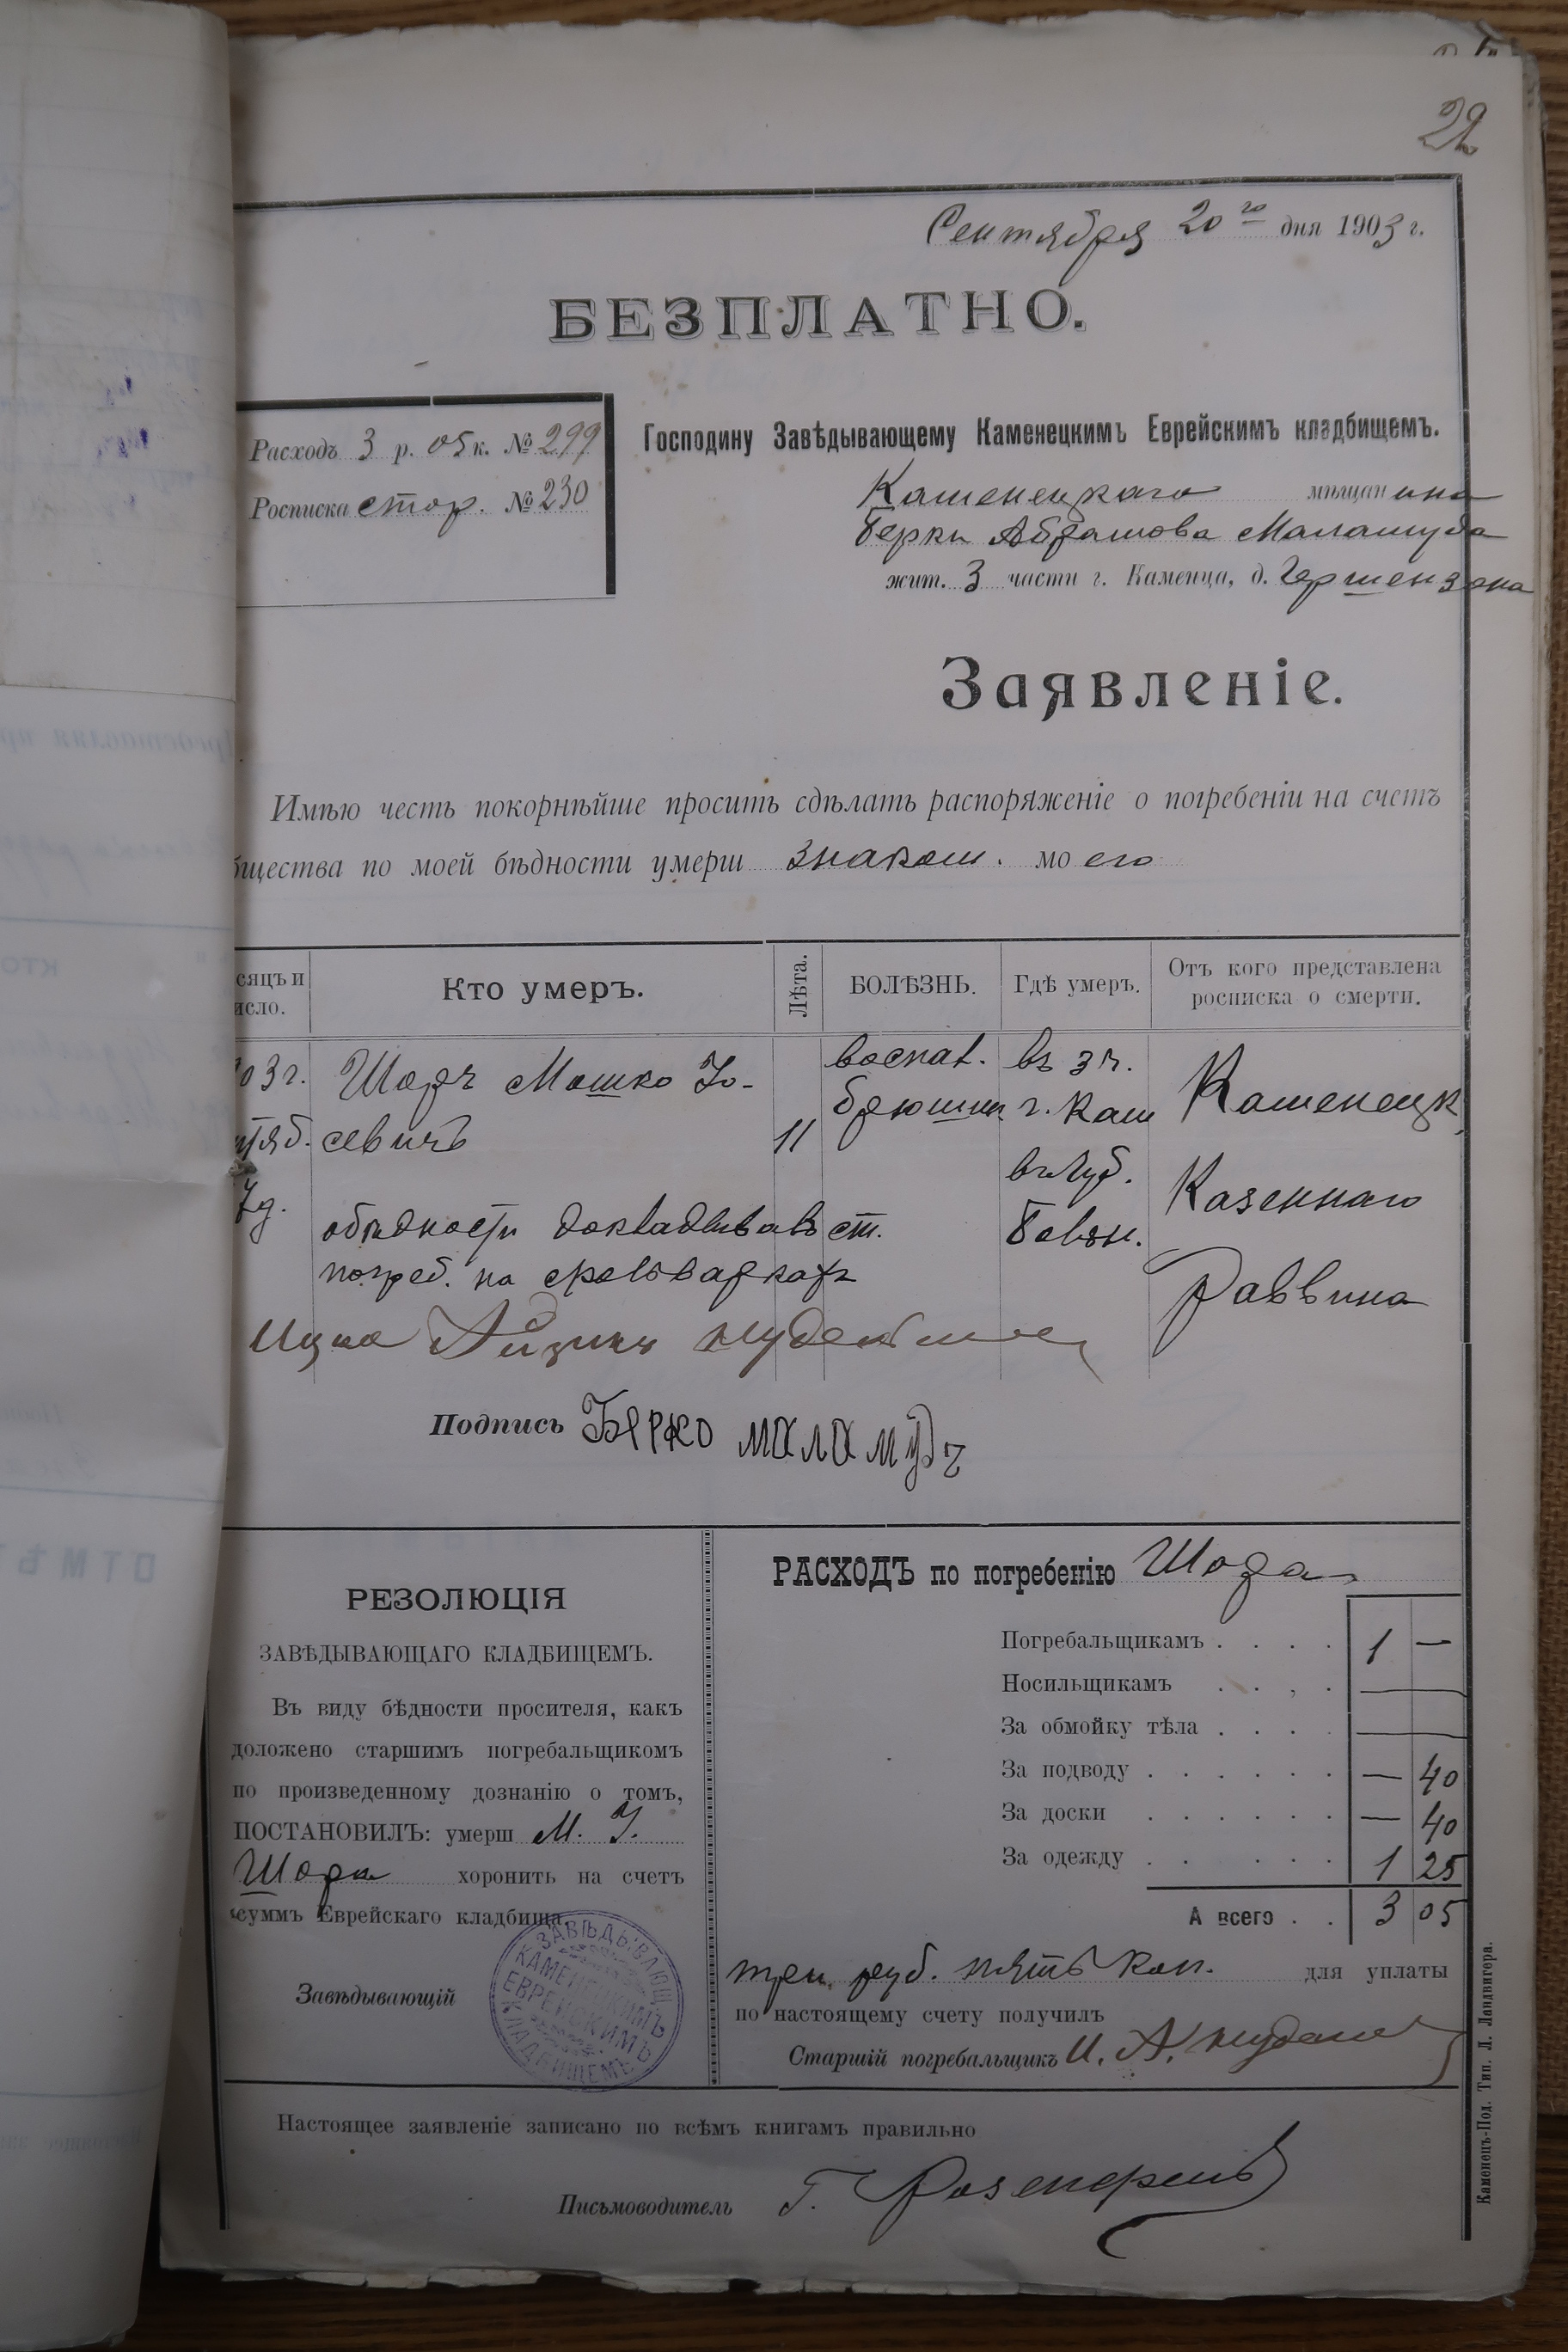 22
Сентября 20 го дня 1903 г.
БЕЗПЛАТНО.
Расходъ 3 р. 05 к. № 299
Росписка стор. № 230
Господину Завѣдывающему Каменецкимъ Еврейскимъ кладбищемъ.
Каменецкаго мѣщанина
Берки Абрамова Маламуда
жит. 3 части г. Каменца, д. Гершензона
Заявленіе.
Имѣю честь покорнѣйше просить сдѣлать распоряженіе о погребеніи на счетъ
бщества по моей бѣдности умерш знаком. моего
сяцъ и
исло.
Кто умеръ.
Лѣта.
БОЛѢЗНЬ.
Гдѣ умеръ.
Отъ кого представлена
росписка о смерти.
03 г.
тяб.
д.
Шоръ Мошко Іо-
севичъ
11
воспал.
брюшин
въ 3 ч.
г. Кам
Каменецк
Казеннаго
Раввина
о бѣдности докладывалъ ст.
погреб. на
Ицко Айзикъ
Подпись Бярко маламудъ
РЕЗОЛЮЦІЯ
ЗАВѢДЫВАЮЩАГО КЛАДБИЩЕМЪ.
Въ виду бѣдности просителя, какъ
доложено старшимъ погребальщикомъ
по произведенному дознанію о томъ,
ПОСТАНОВИЛЪ: умерш М. І.
Шора хоронить на счетъ
суммъ Еврейскаго кладбища.
Завѣдывающій
ЗАВѢДЫВАЮЩ.
КАМЕНЕЦКИМЪ
ЕВРЕЙСКИМЪ
КЛАДБИЩЕМЪ
РАСХОДЪ по погребенію Шора
Погребальщикамъ . . . . 1 —
Носильщикамъ . . . . —
За обмойку тѣла . . . . —
За подводу . . . . . . — 40
За доски . . . . . . — 40
За одежду . . . . . . 1 25
А всего . . 3 05
три руб. пять коп. для уплаты
по настоящему счету получилъ
Старшій погребальщикъ И. А.
Настоящее заявленіе записано по всѣмъ книгамъ правильно
Письмоводитель Г.
Каменецъ-Под. Тип. Л. Ландвигера.